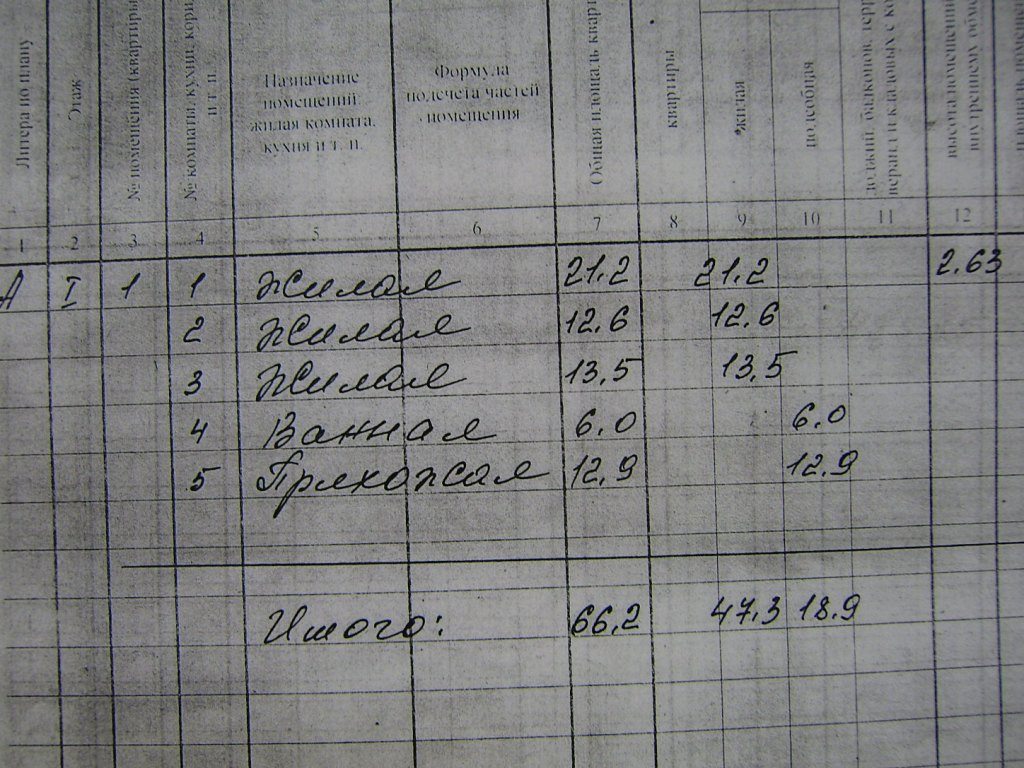 Литера по плану
Этаж
№ помещения (квартиры
№ комнаты, кухни, кори
и т. п.
Назначение
помещений:
жилая комната,
кухня и т. п.
Формула
подсчета частей
помещения
Общая площадь квар
квартиры
жилая
подсобная
лоджий, балконов, терр
веранд и кладовых с ко
высота помещений
внутреннем обме
1 2 3 4 5 6 7 8 9 10 11 12
А I 1 1 Жилая 21,2 21,2 2.63
2 Жилая 12,6 12,6
3 Жилая 13,5 13,5
4 Ванная 6,0 6,0
5 Прихожая 12,9 12.9
Итого: 66,2 47,3 18,9